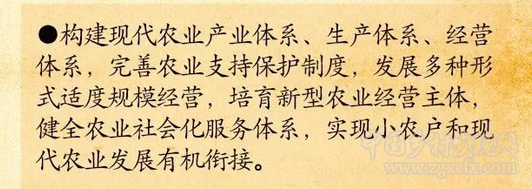 ●构建现代农业产业体系、生产体系、经营
体系，完善农业支持保护制度，发展多种形
式适度规模经营，培育新型农业经营主体，
健全农业社会化服务体系，实现小农户和现
代农业发展有机衔接。